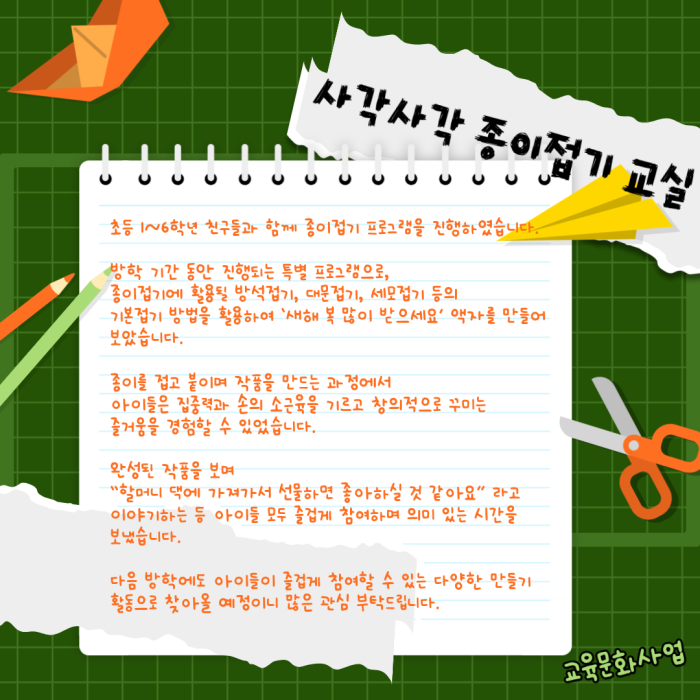 사각사각 종이접기 교실
초등 1~6학년 친구들과 함께 종이접기 프로그램을 진행하였습니다.
방학 기간 동안 진행되는 특별 프로그램으로,
종이접기에 활용될 방석접기, 대문접기, 세모접기 등의
기본접기 방법을 활용하여 '새해 복 많이 받으세요' 액자를 만들어
보았습니다.
종이를 접고 붙이며 작품을 만드는 과정에서
아이들은 집중력과 손의 소근육을 기르고 창의적으로 꾸미는
즐거움을 경험할 수 있었습니다.
완성된 작품을 보며
"할머니 댁에 가져가서 선물하면 좋아하실 것 같아요" 라고
이야기하는 등 아이들 모두 즐겁게 참여하며 의미 있는 시간을
보냈습니다.
다음 방학에도 아이들이 즐겁게 참여할 수 있는 다양한 만들기
활동으로 찾아올 예정이니 많은 관심 부탁드립니다.
교육문화사업